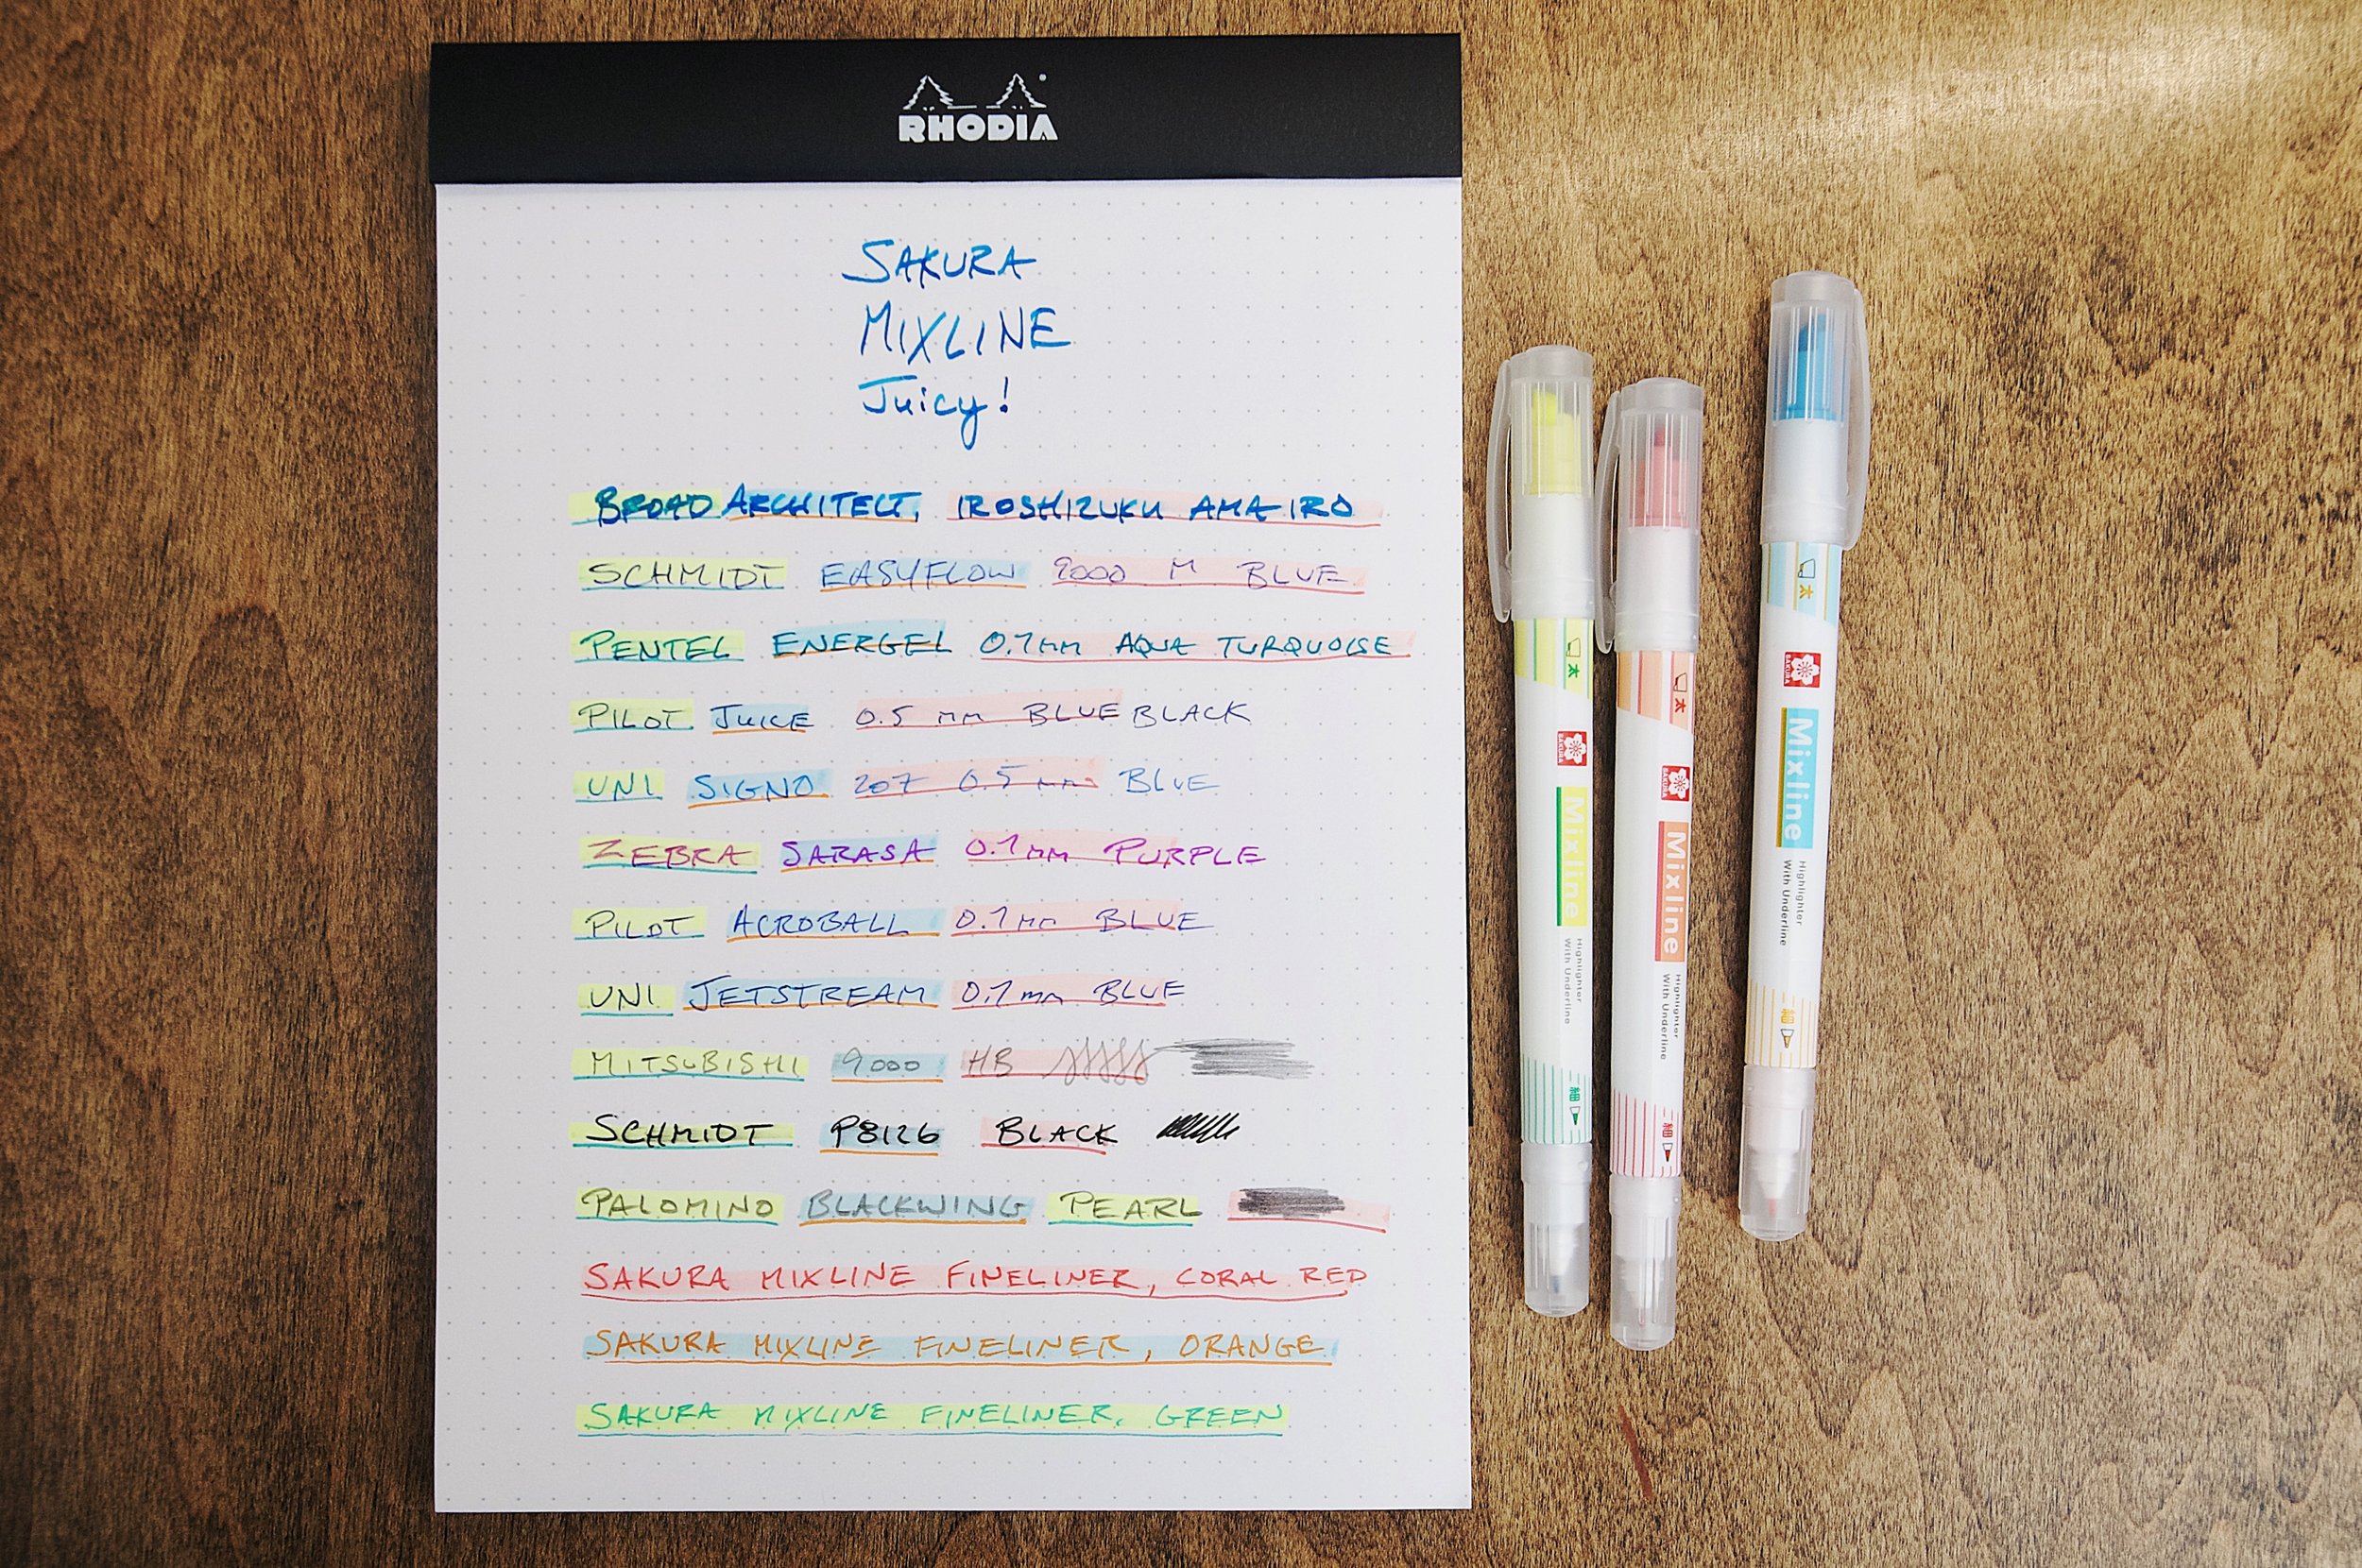 RHODIA
SAKURA
MIXLINE
Juicy!
BROAD ARCHITECT, IROSHIZUKU AMA-IRO
SCHMIDT EASYFLOW 9000 M BLUE
PENTEL ENERGEL 0.7mm AQUA TURQUOISE
PILOT JUICE 0.5 mm BLUE BLACK
UNI SIGNO 207 0.5 mm BLUE
ZEBRA SARASA 0.7mm PURPLE
PILOT ACROBALL 0.7mm BLUE
UNI JETSTREAM 0.7mm BLUE
MITSUBISHI 9000 HB
SCHMIDT P8126 BLACK
PALOMINO BLACKWING PEARL
SAKURA MIXLINE FINELINER, CORAL RED
SAKURA MIXLINE FINELINER, ORANGE
SAKURA MIXLINE FINELINER, GREEN
太
SAKURA
Mixline
Highlighter
With Underline
細
太
SAKURA
Mixline
Highlighter
With Underline
細
太
SAKURA
Mixline
Highlighter
With Underline
細